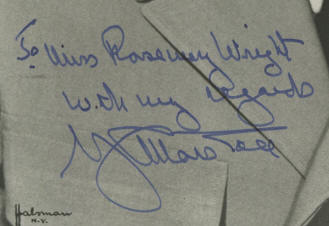 To Miss Rosemary Wright
with my regards
Halsman
N.Y.